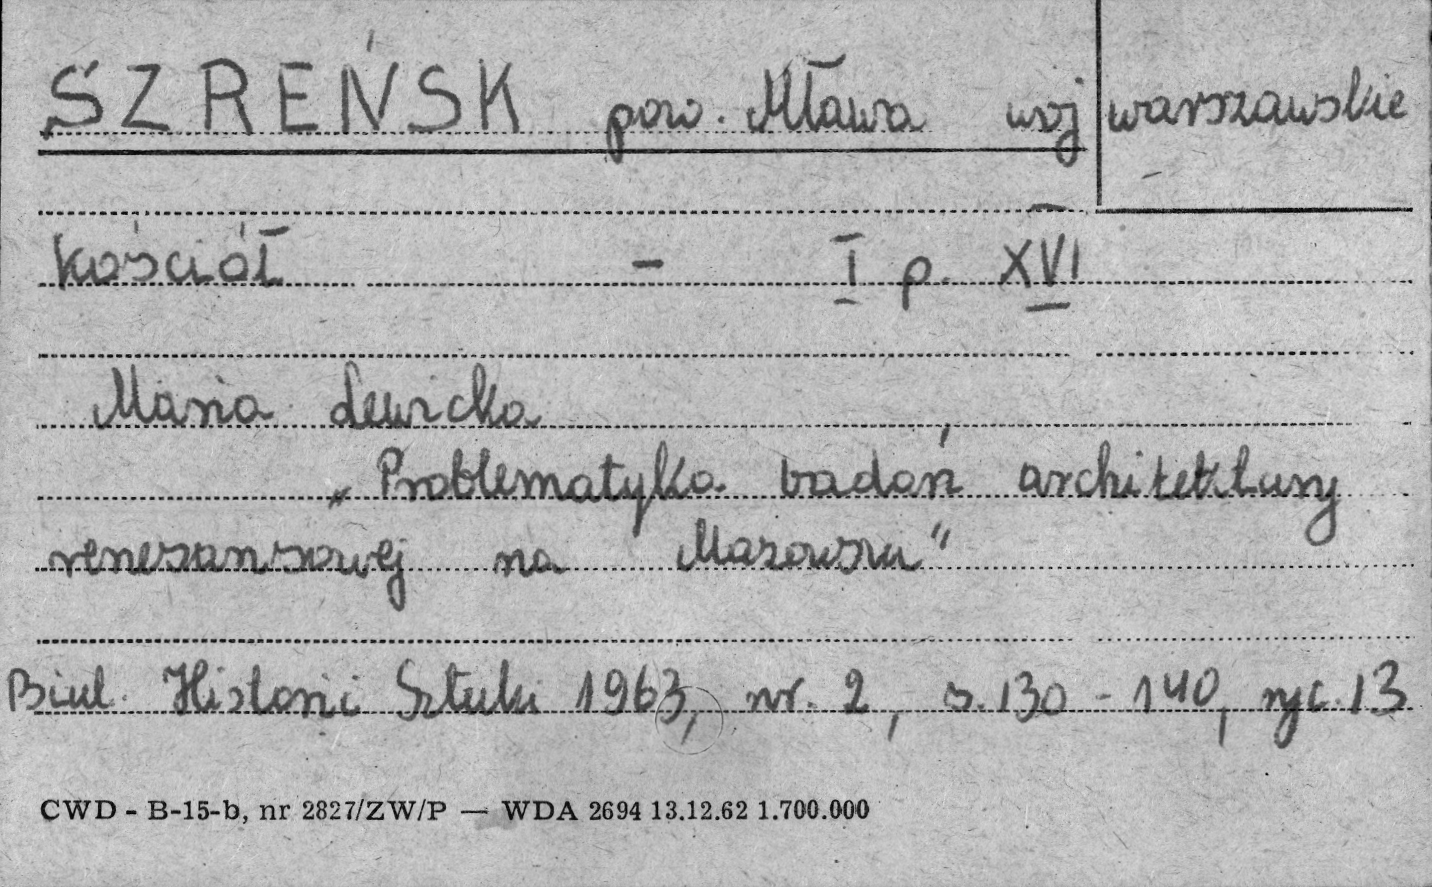 SZREŃSK pow. Mława woj warszawskie
Kościół - I p. XVI
Maria Lewicka
„Problematyka badań architektury
renesansowej na Mazowszu"
Biul. Historii Sztuki 1963, nr. 2, s. 130 - 140, ryc. 13
CWD - B-15-b, nr 2827/ZW/P — WDA 2694 13.12.62 1.700.000